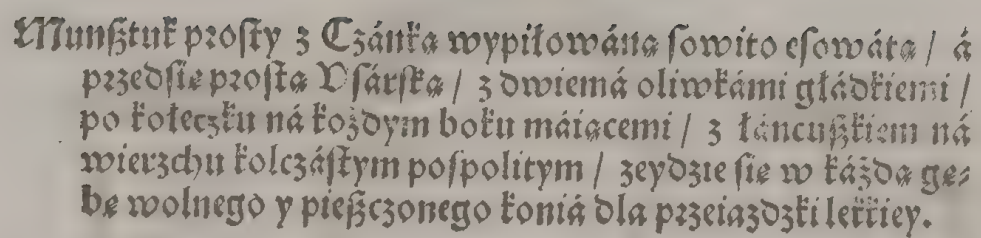 Munſztuk proſty z Czánką wypiłowáną ſowito eſowátą / á
przedſię proſtą Vſárſką / z dwiemá oliwkámi głádkiemi /
po kołeczku ná kożdym boku máiącemi / z łáncuſzkiem ná
wierzchu kolczáſtym poſpolitym / zeydzie ſię w káżdą gę⸗
bę wolnego y pieſzczonego koniá dla przeiazdzki lekkiey.